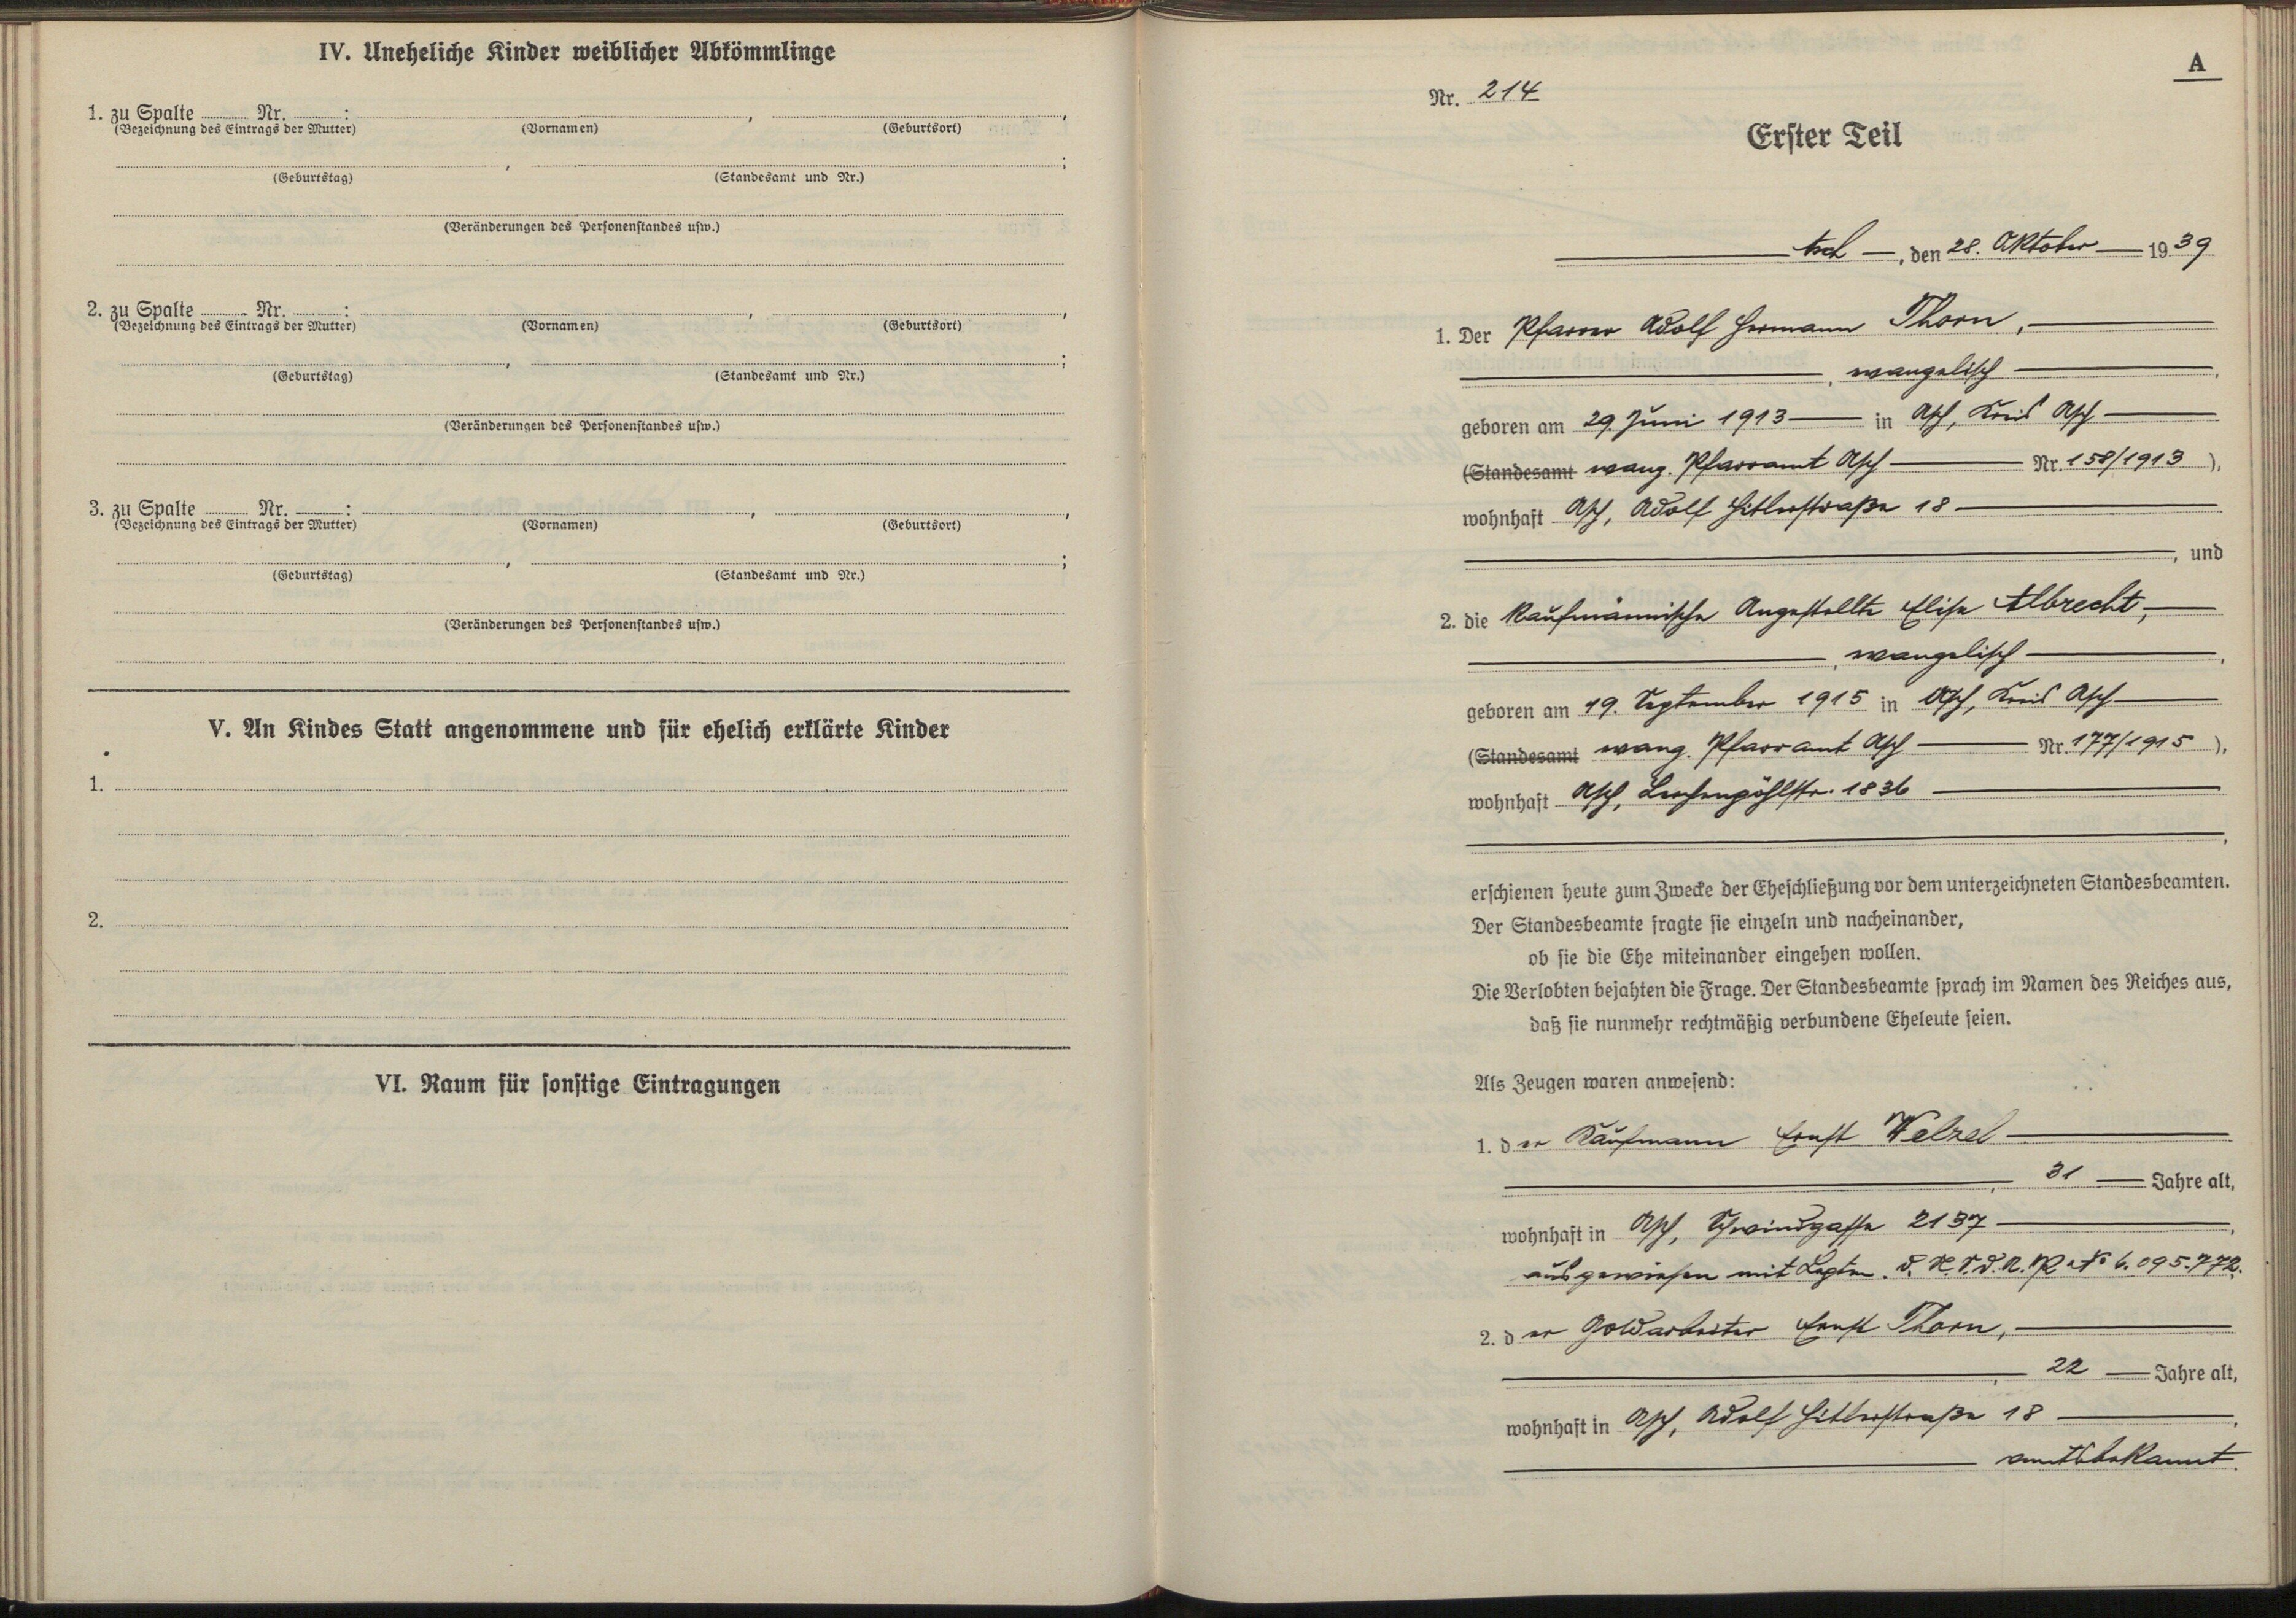 IV. Uneheliche Kinder weiblicher Abkömmlinge
1. zu Spalte Nr. : , ,
(Bezeichnung des Eintrags der Mutter) (Vornamen) (Geburtsort)
, ;
(Geburtstag) (Standesamt und Nr.)
(Veränderungen des Personenstandes usw.)
2. zu Spalte Nr. : , ,
(Bezeichnung des Eintrags der Mutter) (Vornamen) (Geburtsort)
, ;
(Geburtstag) (Standesamt und Nr.)
(Veränderungen des Personenstandes usw.)
3. zu Spalte Nr. : , ,
(Bezeichnung des Eintrags der Mutter) (Vornamen) (Geburtsort)
, ;
(Geburtstag) (Standesamt und Nr.)
(Veränderungen des Personenstandes usw.)
V. An Kindes Statt angenommene und für ehelich erklärte Kinder
1.
2.
VI. Raum für sonstige Eintragungen
A
Nr. 214
Erster Teil
Asch, den 28. Oktober 1939
1. Der Pfarrer Adolf Hermann Thorn,
, evangelisch,
geboren am 29. Juni 1913 in Asch, Kreis Asch
(Standesamt evang. Pfarramt Asch Nr. 158/1913),
wohnhaft Asch, Adolf Hitlerstraße 18
, und
2. die kaufmännische Angestellte Elise Albrecht,
, evangelisch,
geboren am 19. September 1915 in Asch, Kreis Asch
(Standesamt evang. Pfarramt Asch Nr. 177/1915),
wohnhaft Asch, Lerchenpöhlstr. 1836
,
erschienen heute zum Zwecke der Eheschließung vor dem unterzeichneten Standesbeamten.
Der Standesbeamte fragte sie einzeln und nacheinander,
ob sie die Ehe miteinander eingehen wollen.
Die Verlobten bejahten die Frage. Der Standesbeamte sprach im Namen des Reiches aus,
daß sie nunmehr rechtmäßig verbundene Eheleute seien.
Als Zeugen waren anwesend:
1. der Kaufmann Ernst Welzel
, 31 Jahre alt,
wohnhaft in Asch, Schwindgasse 2137,
ausgewiesen mit Legtm. 6.095.772.
2. der Goldarbeiter Ernst Thorn,
, 22 Jahre alt,
wohnhaft in Asch, Adolf Hitlerstraße 18,
amtsbekannt.